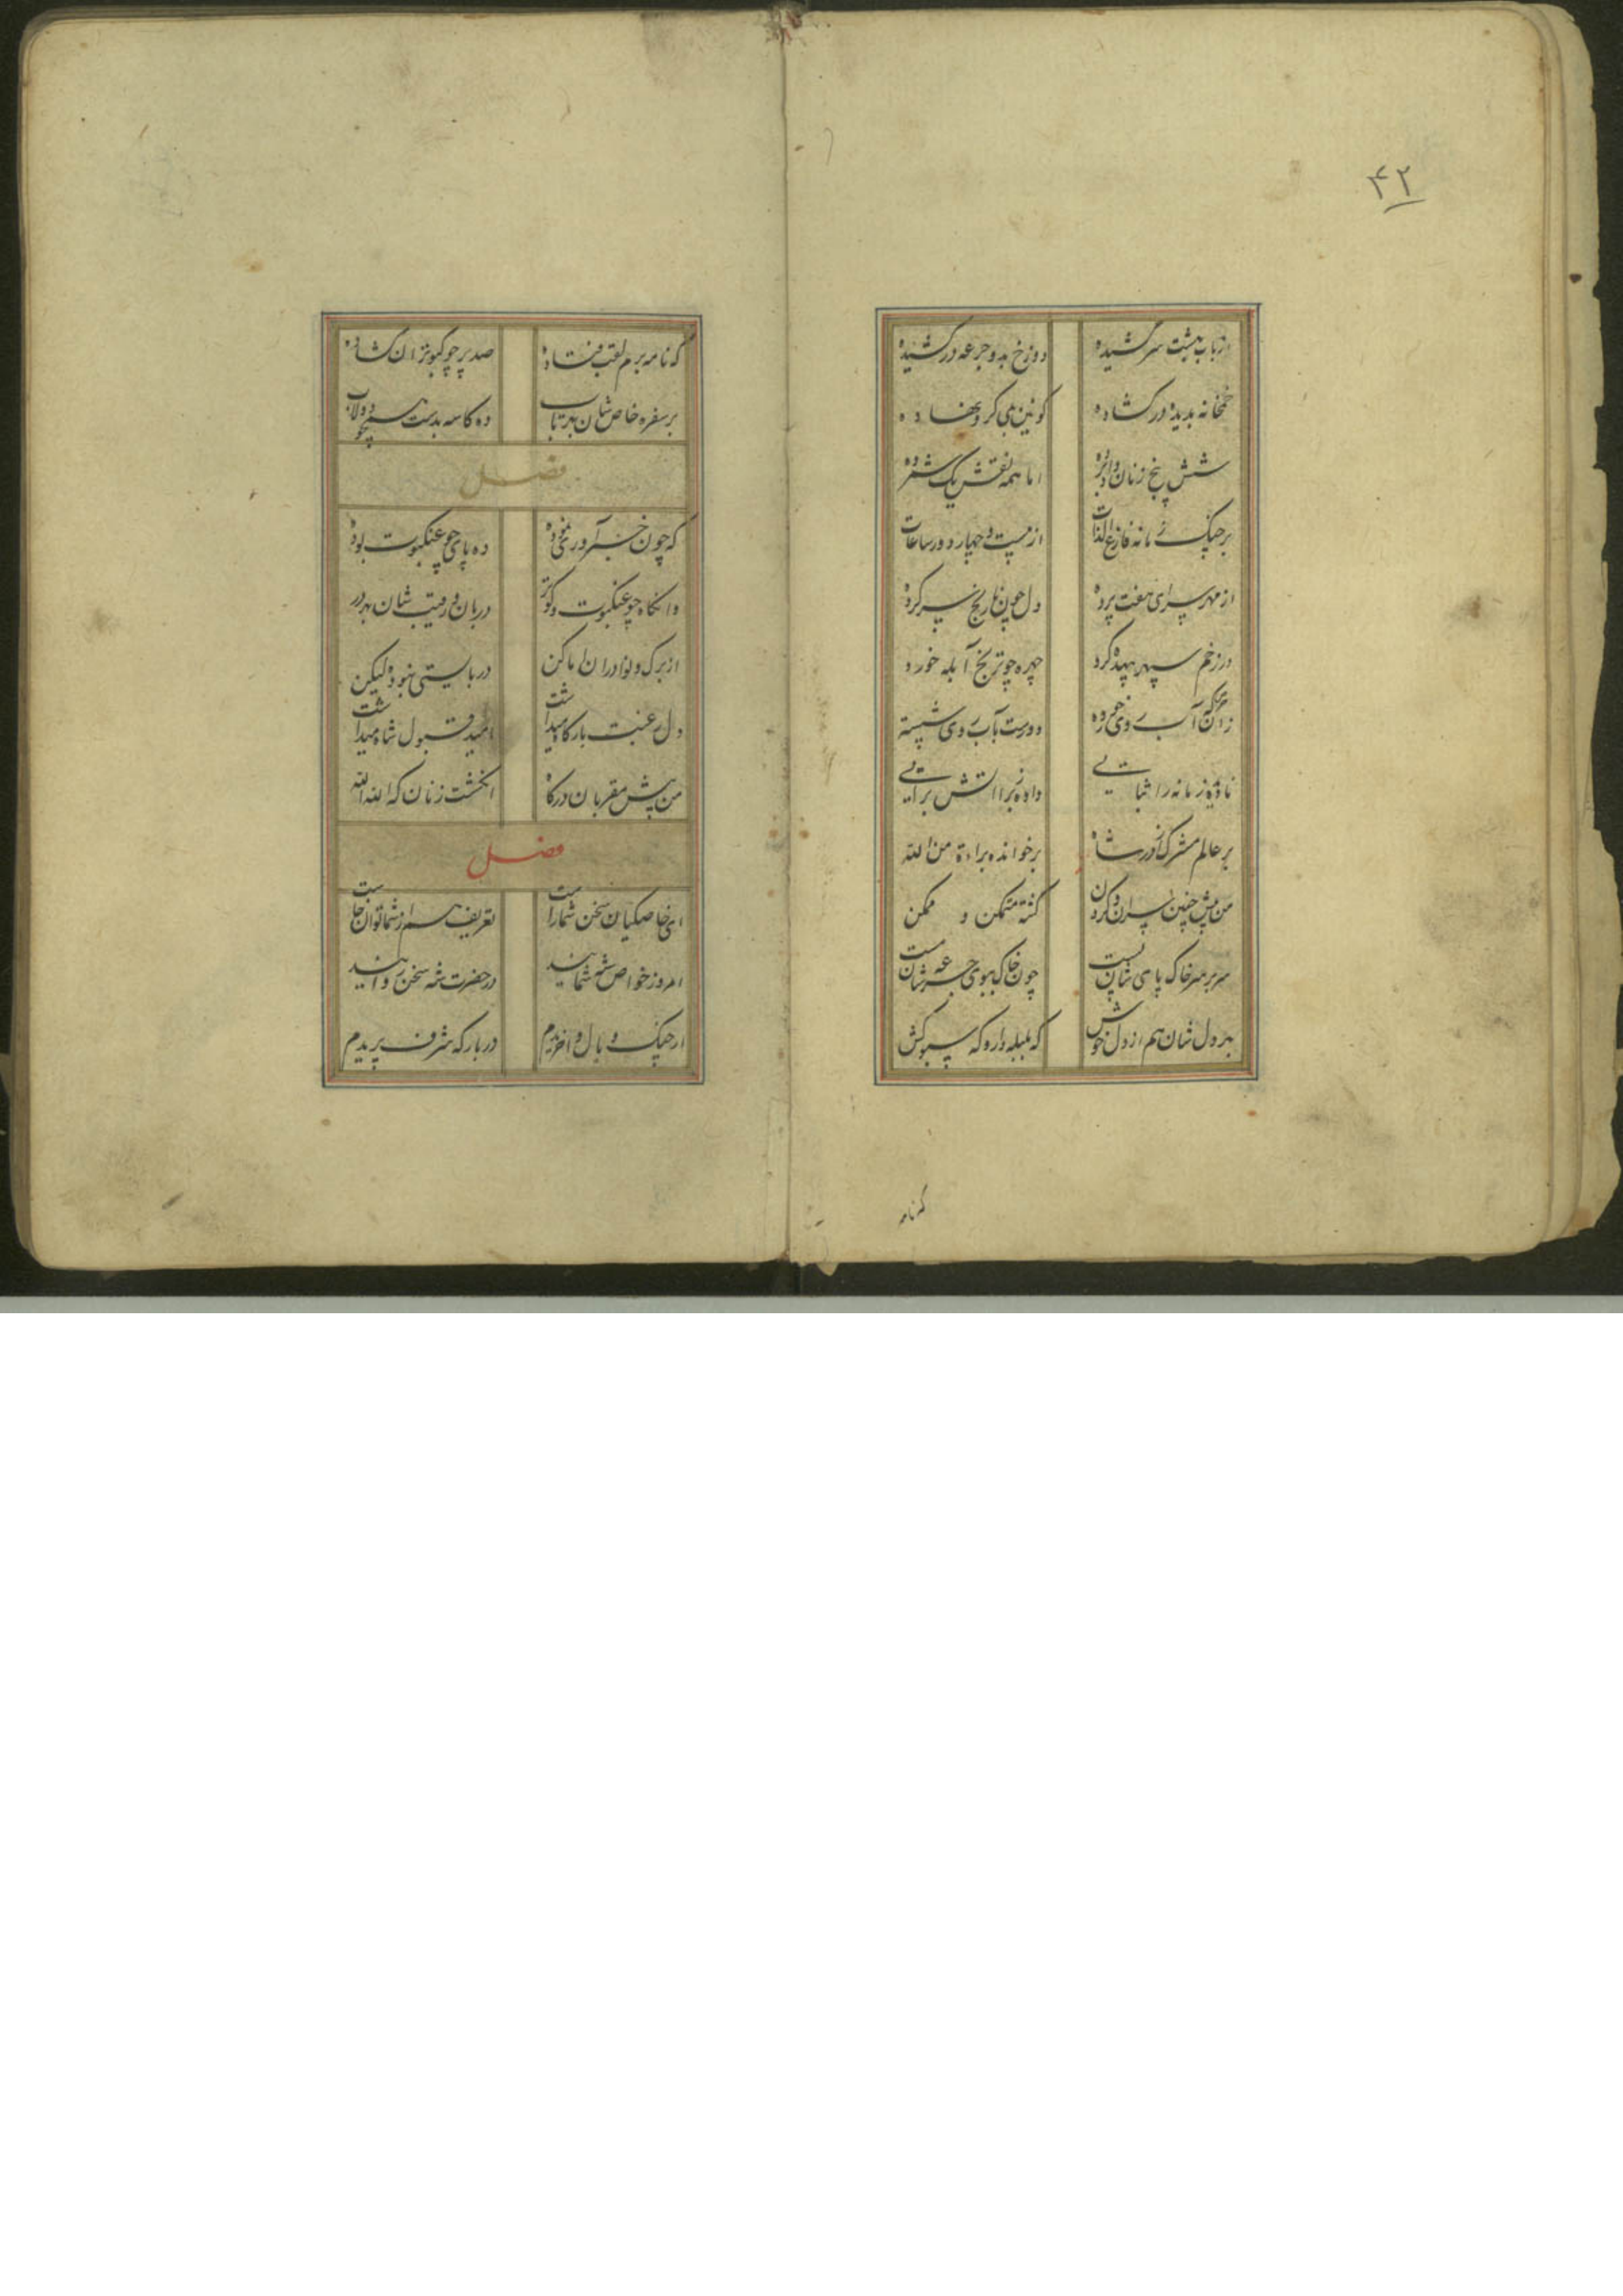 ۴۲
از باب بهشت سر کشیده دوزخ بدو جرعه درکشیده
خمخانه بدیده درکشاده کونین می کرو نهاده
شش پنج زنان و داد برده اما همه نقش یک شمرده
بر چنک زمانه فارغ الذات از بیست و چهار دور ساعات
از مهر سرای هفت پرده دل چون نارنج سیر کرده
در زخم سپهر بهیده کرد چهره چو ترنج آبله خورد
زان آب روی خورده دو دست بآب روی شسته
نا زمانه را ثباتی داده ز برا آتش براتی
بر عالم مشرک از در شاه برخوانده براءة من الله
من پیش چنین سران کشته متمکن و ممکن
سر بر سر خاک پای شان نیست چون خاک ببوی جرعه شان مست
بر دل شان هم از دل خوش که بلبله دار و که سبوکش
که نامه
که نامه برم لقب فتاده صد پر چو کبوتران کشاده
بر سفره خاص شان بهر تاب ده کاسه بدست همچو دولاب
فصل
که چون خر آور نخ نموده ده پای چو عنکبوت بوده
وانکاه چو عنکبوت و کوتر دربان و رقیب شان بهر در
از برک و نوا دران اماکن دربایستی نبود لیکن
دل رغبت بارکاه میداشت امید قبول شاه میداشت
من پیش مقربان درکاه انکشت زنان که الله الله
فصل
ای خاصکیان سخن شماراست تعریف سر از شما توان خاست
امروز خواص شه شمایید در حضرت شه سخن رانید
ار چنک وبال واخریدم در بارکه شرف پریدم